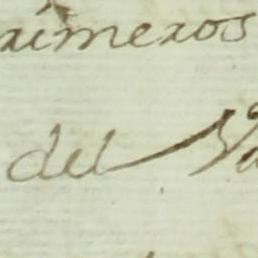 rimeros
del